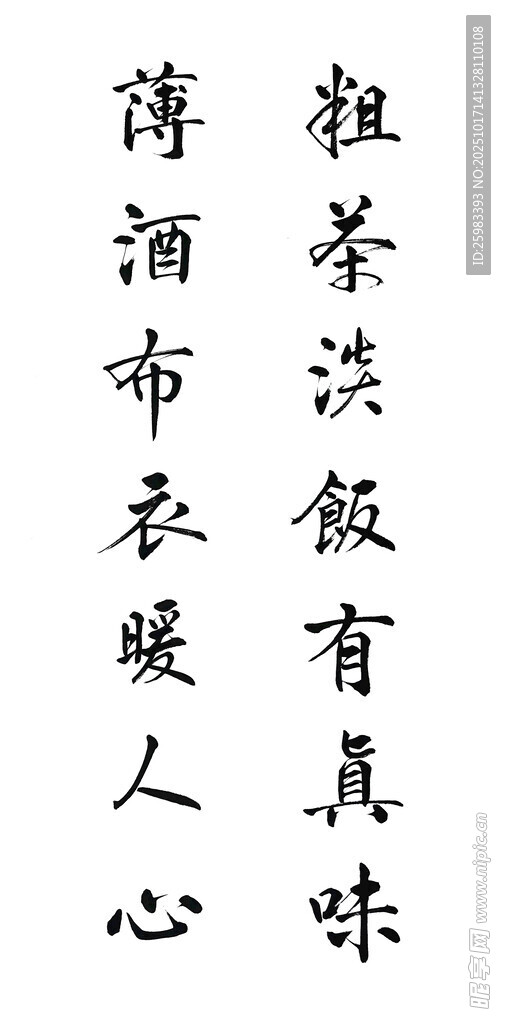 粗茶淡飯有真味
薄酒布衣暖人心
ID:25983393 NO:20251017141328110108
昵享网 www.nipic.cn